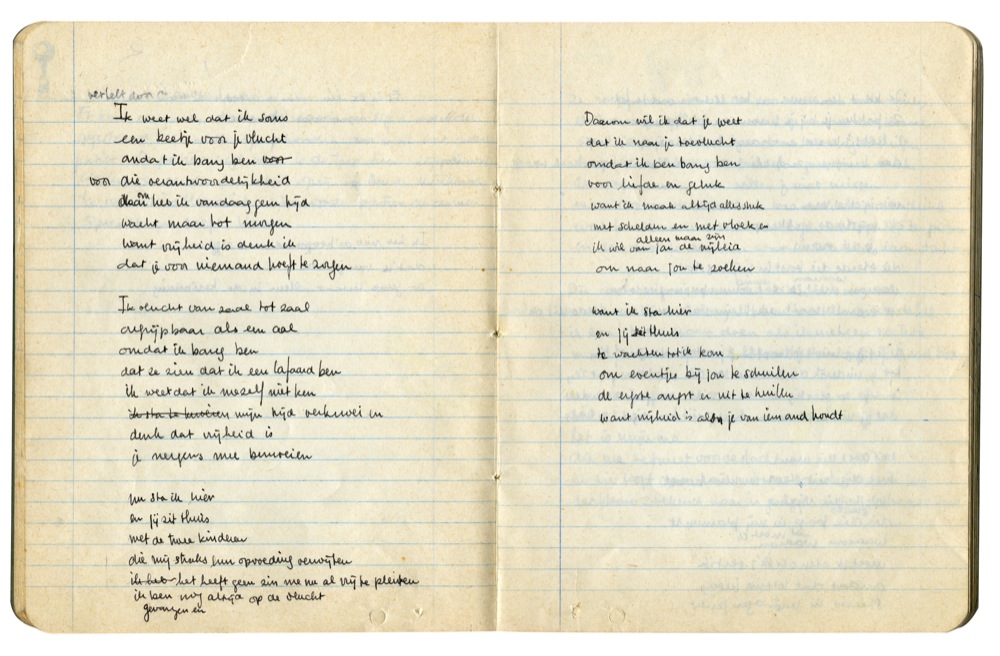 vertelt door
Ik weet wel dat ik soms
een beetje voor je vlucht
omdat ik bang ben voor
voor die verantwoordelijkheid
daarom heb ik vandaag geen tijd
wacht maar tot morgen
want vrijheid is denk ik
dat je voor niemand hoeft te zorgen
Ik vlucht van zaal tot zaal
ongrijpbaar als een aal
omdat ik bang ben
dat ze zien dat ik een lafaard ben
ik weet dat ik mezelf niet ken
ik sta te mijn tijd verknoei en
denk dat vrijheid is
je nergens mee bemoeien
nu sta ik hier
en jij zit thuis
met de twee kinderen
die mij straks hun opvoeding verwijten
ik heb het heeft geen zin me nu al vrij te pleiten
ik ben nog altijd op de vlucht
gevangen en
Daarom wil ik dat je weet
dat ik naar je toevlucht
omdat ik ben bang ben
voor liefde en geluk
want ik maak altijd alles stuk
met schelden en met vloeken
alleen maar zijn
ik wil van jou de vrijheid
om naar jou te zoeken
want ik sta hier
en jij zit thuis
te wachten tot ik kom
om eventjes bij jou te schuilen
de ergste angst er uit te huilen
want vrijheid is als je van iemand houdt